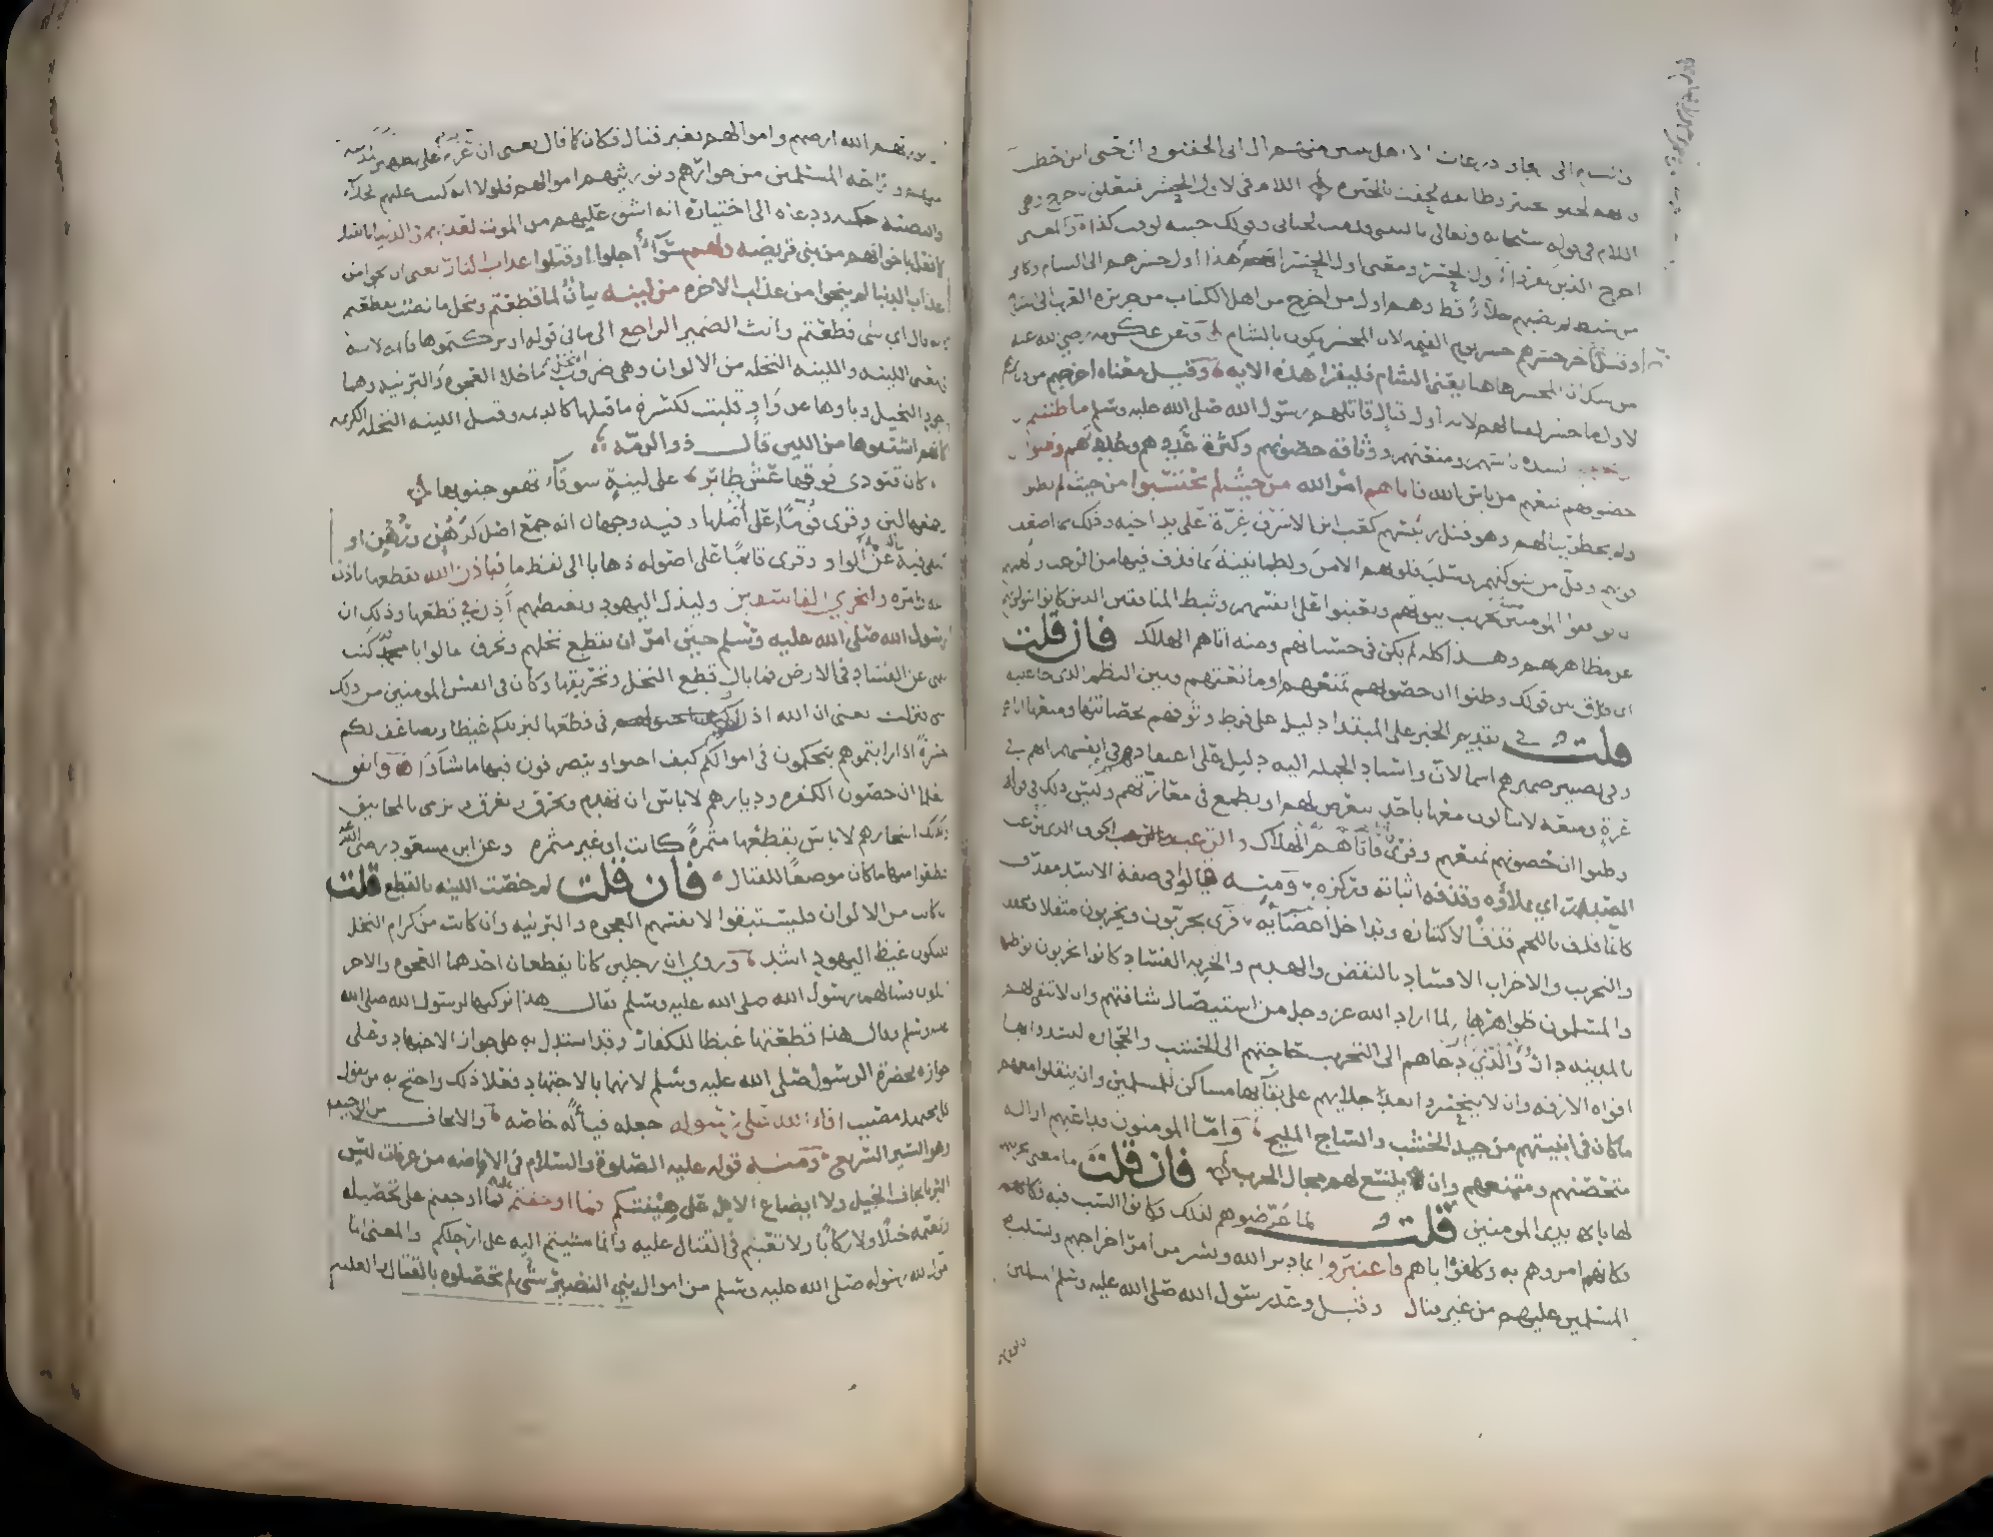 من الشام إلى اريحا واذرعات الا اهل بيتين منهم ال ابى الحقيق وال حيى ابن اخطب
فانهم لحقوا بخيبر وطائفة لحقت بالحيرة اللام فى لاول الحشر تتعلق باخرج وهى
اللام فى قوله سبحانه وتعالى يا ليتنى قدمت لحياتى وقولك جيته لوقت كذا والمعنى
اخرج الذين كفروا عند اول الحشر ومعنى اول الحشر ان هذا اول حشرهم الى الشام وكانوا
من سبط لم يصبهم جلاء قط وهم اول من اخرج من اهل الكتاب من جزيرة العرب الى الشام
او قيل اخر حشرهم حشر يوم القيمة لان المحشر يكون بالشام وعن عكرمة رضى الله عنه
من شك ان المحشر هاهنا يعنى الشام فليقرا هذه الاية وقيل معناه اخرجهم من ديارهم
لاول ما حشر لقتالهم لانه اول قتال قاتلهم رسول الله صلى الله عليه وسلم ما ظننتم
لشدة باسهم ومنعتهم ووثاقة حصونهم وكثرة عددهم وعدتهم وظنوا
حصونهم تمنعهم من باس الله فاتاهم امر الله من حيث لم يحتسبوا من حيث لم يظنوا
ولم يخطر ببالهم وهو قتل رئيسهم كعب ابن الاشرف غرة على يد اخيه وذلك مما اضعف
قوتهم وفل من شوكتهم وسلب قلوبهم الامن والطمانينة بما قذف فيها من الرعب والهمهم
ان يوافقوا المومنين فى تخريب بيوتهم ويعينوا على انفسهم وثبط المنافقين الذين كانوا يتولونهم
عن مظاهرتهم وهذا كله لم يكن فى حسبانهم ومنه اتاهم الهلاك فان قلت
اى فرق بين قولك وظنوا ان حصونهم تمنعهم او مانعتهم وبين النظم الذى جا عليه
قلت فى تقديم الخبر على المبتدا دليل على فرط وثوقهم بحصانتها ومنعها اياهم
وفى تصيير ضميرهم اسما لان واسناد الجملة اليه دليل على اعتقادهم فى انفسهم انهم فى
عزة ومنعة لا يبالون معها باحد يتعرض لهم او يطمع فى معازتهم وليس ذلك فى قوله
وظنوا ان حصونهم تمنعهم وقرى فاتاهم الهلاك والرعب الخوف الذى يرعب
الصدر اى يملاؤه وقذفه اثباته وتركزه ومنه قالوا فى صفة الاسد مقذف
كانما قذف باللحم قذفا لاكتنازه وتداخل اعضايه قرى يخربون ويخربون مثقلا ومخففا
والتخريب والاخراب الافساد بالنقض والهدم والخربة الفساد كانوا يخربون بواطنها
والمسلمون ظواهرها لما اراد الله عز وجل من استيصال شافتهم وان لا تبقى لهم
بالمدينة دار والذى دعاهم الى التخريب حاجتهم الى الخشب والحجارة ليسدوا بها
افواه الازقة وان لا يتحسروا بعد جلايهم على بقايها مساكن للمسلمين وان ينقلوا معهم
ما كان فى ابنيتهم من جيد الخشب والساج المليح واما المومنون فداعيهم ازالة
متحصنهم ومتمنعهم وان يتسع لهم مجال الحرب فان قلت ما معنى تخريبهم
لها بايدى المومنين قلت لما عرضوهم لذلك وكانوا السبب فيه فكانهم
فكانهم امروهم به وكلفوا اياهم فاعتبروا بما دبر الله ويسر من امر اخراجهم وتسليط
المسلمين عليهم من غير قتال وقيل وعد رسول الله صلى الله عليه وسلم المسلمين
ان يورثهم الله ارضهم واموالهم بغير قتال فكان كما قال يعنى ان
واراحة المسلمين من جوارهم وتوريثهم اموالهم فلولا انه كتب عليهم الجلاء
واقتضته حكمته ودعاه الى اختياره انه اشق عليهم من الموت لعذبهم فى الدنيا بالقتل
كما فعل باخوانهم من بنى قريضة ولهم سواء اجلوا او قتلوا عذاب النار يعنى ان نجوا من
عذاب الدنيا لم ينجوا من عذاب الاخرة من لينة بيان لما قطعتم ومحل ما نصب بقطعتم
كانه قال اى شى قطعتم وانث الضمير الراجع الى ما فى قوله او تركتموها لانه
فى معنى اللينة واللينة النخلة من الالوان وهى ضروب النخل ما خلا العجوة والبرنية وهما
اجود النخيل وياوها عن واو قلبت لكسرة ما قبلها كالديمة وقيل اللينة النخلة الكريمة
كانهم اشتقوها من اللين قال ذو الرمة
كان قتودى فوقها عش طاير على لينة سوقاء تهفو جنوبها
وجمعها لين وقرى قوما على اصلها وفيه وجهان انه جمع اصل كرهن ورهن او
اكتفى فيه بالضمة عن الواو وقرى قايما على اصوله ذهابا الى لفظ ما فباذن الله فقطعها باذن
الله وامره وليخزى الفاسقين وليذل اليهود ويغيظهم اذن فى قطعها وذلك ان
رسول الله صلى الله عليه وسلم حين امر ان تقطع نخلهم وتحرق قالوا يا محمد قد كنت
تنهى عن الفساد فى الارض فما بال قطع النخل وتحريقها وكان فى انفس المومنين من ذلك
شى فنزلت يعنى ان الله اذن لهم فى قطعها ليزيدكم غيظا ويضاعف لكم
حسرة اذا رايتموهم يتحكمون فى اموالكم كيف احبوا ويتصرفون فيها ما شاؤا واتفق
العلما ان حصون الكفرة وديارهم لا باس ان تهدم وتحرق وتغرق وترمى بالمجانيق
وكذلك اشجارهم لا باس بقطعها مثمرة كانت او غير مثمرة وعن ابن مسعود رضى الله عنه
قطعوا منها ما كان موضعا للقتال فان قلت لم خصت اللينة بالقطع قلت
ان كانت من الالوان فليستبقوا لانفسهم العجوة والبرنية وان كانت من كرام النخل
فليكون غيظ اليهود اشد وروى ان رجلين كانا يقطعان احدهما العجوة والاخر
اللون فسالهما رسول الله صلى الله عليه وسلم فقال هذا تركتها لرسول الله صلى الله
عليه وسلم وقال هذا قطعتها غيظا للكفار وقد استدل به على جواز الاجتهاد وعلى
جوازه بحضرة الرسول صلى الله عليه وسلم لانهما بالاجتهاد فعلا ذلك واحتج به من يقول
كل مجتهد مصيب افاء الله على رسوله جعله فيا له خاصة والايجاف من الوجيف
وهو السير السريع ومنه قوله عليه الصلوة والسلام فى الافاضة من عرفات ليس
البر بايجاف الخيل ولا ايضاع الابل على هينتكم فما اوجفتم فما اوجفتم على تحصيله
وتغنمه خيلا ولا ركابا ولا تعبتم فى القتال عليه وانما مشيتم اليه على ارجلكم والمعنى ان ما
خول الله رسوله صلى الله عليه وسلم من اموال بنى النضير شى لم تحصلوه بالقتال والغلبة